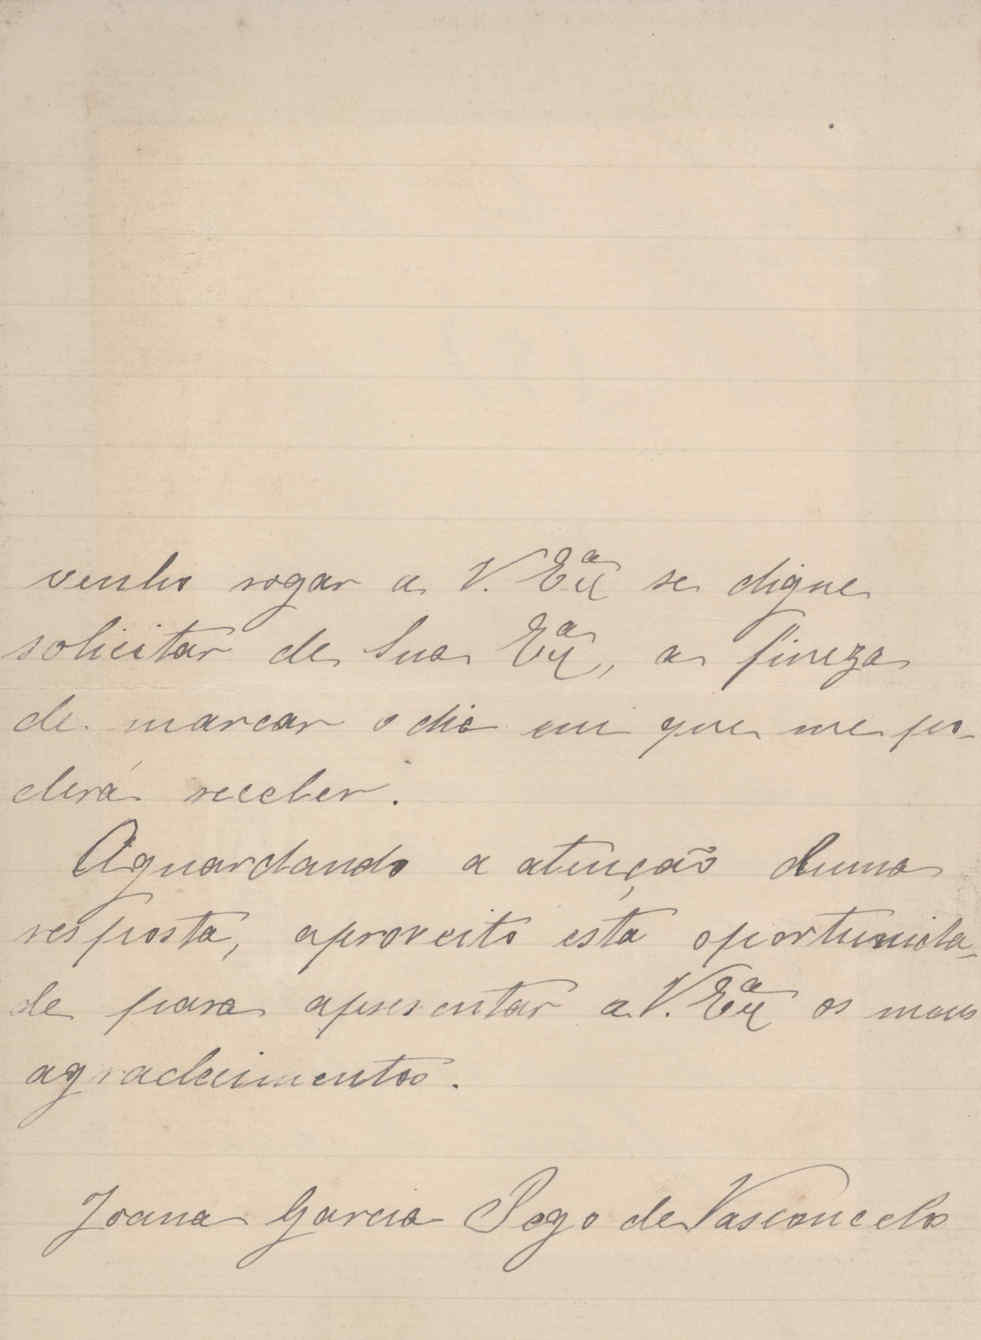 venho rogar a V. Exª se digne
solicitar de Sua Exª, a fineza
de marcar o dia em que me po-
derá receber.
Aguardando a atenção duma
resposta, aproveito esta oportunida-
de para apresentar a V. Exª os meus
agradecimentos.
Joana Garcia Pego de Vasconcelos